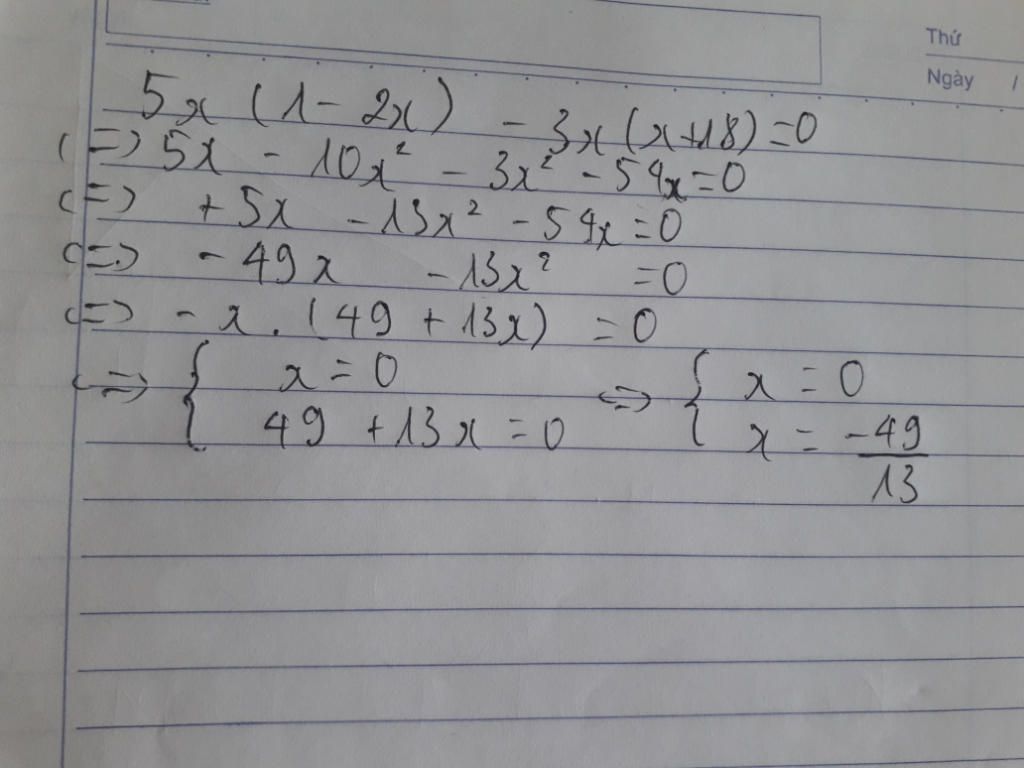 Thứ
Ngày /
5x (1 - 2x) - 3x (x+18) = 0
(=) 5x - 10x² - 3x² - 54x = 0
(=) + 5x - 13x² - 54x = 0
(=) - 49x - 13x² = 0
(=) - x . (49 + 13x) = 0
(=) { x = 0 (=) { x = 0
49 + 13x = 0 x = -49/13